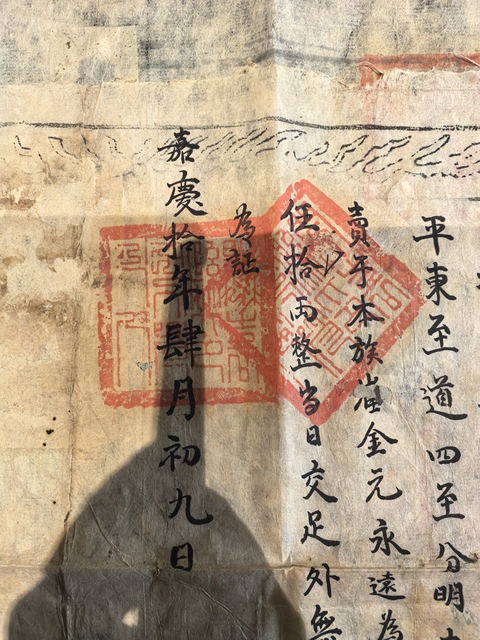 平東至道四至分明
賣于本族金元永遠為
伍拾両整当日交足外無
為証
嘉慶拾年肆月初九日